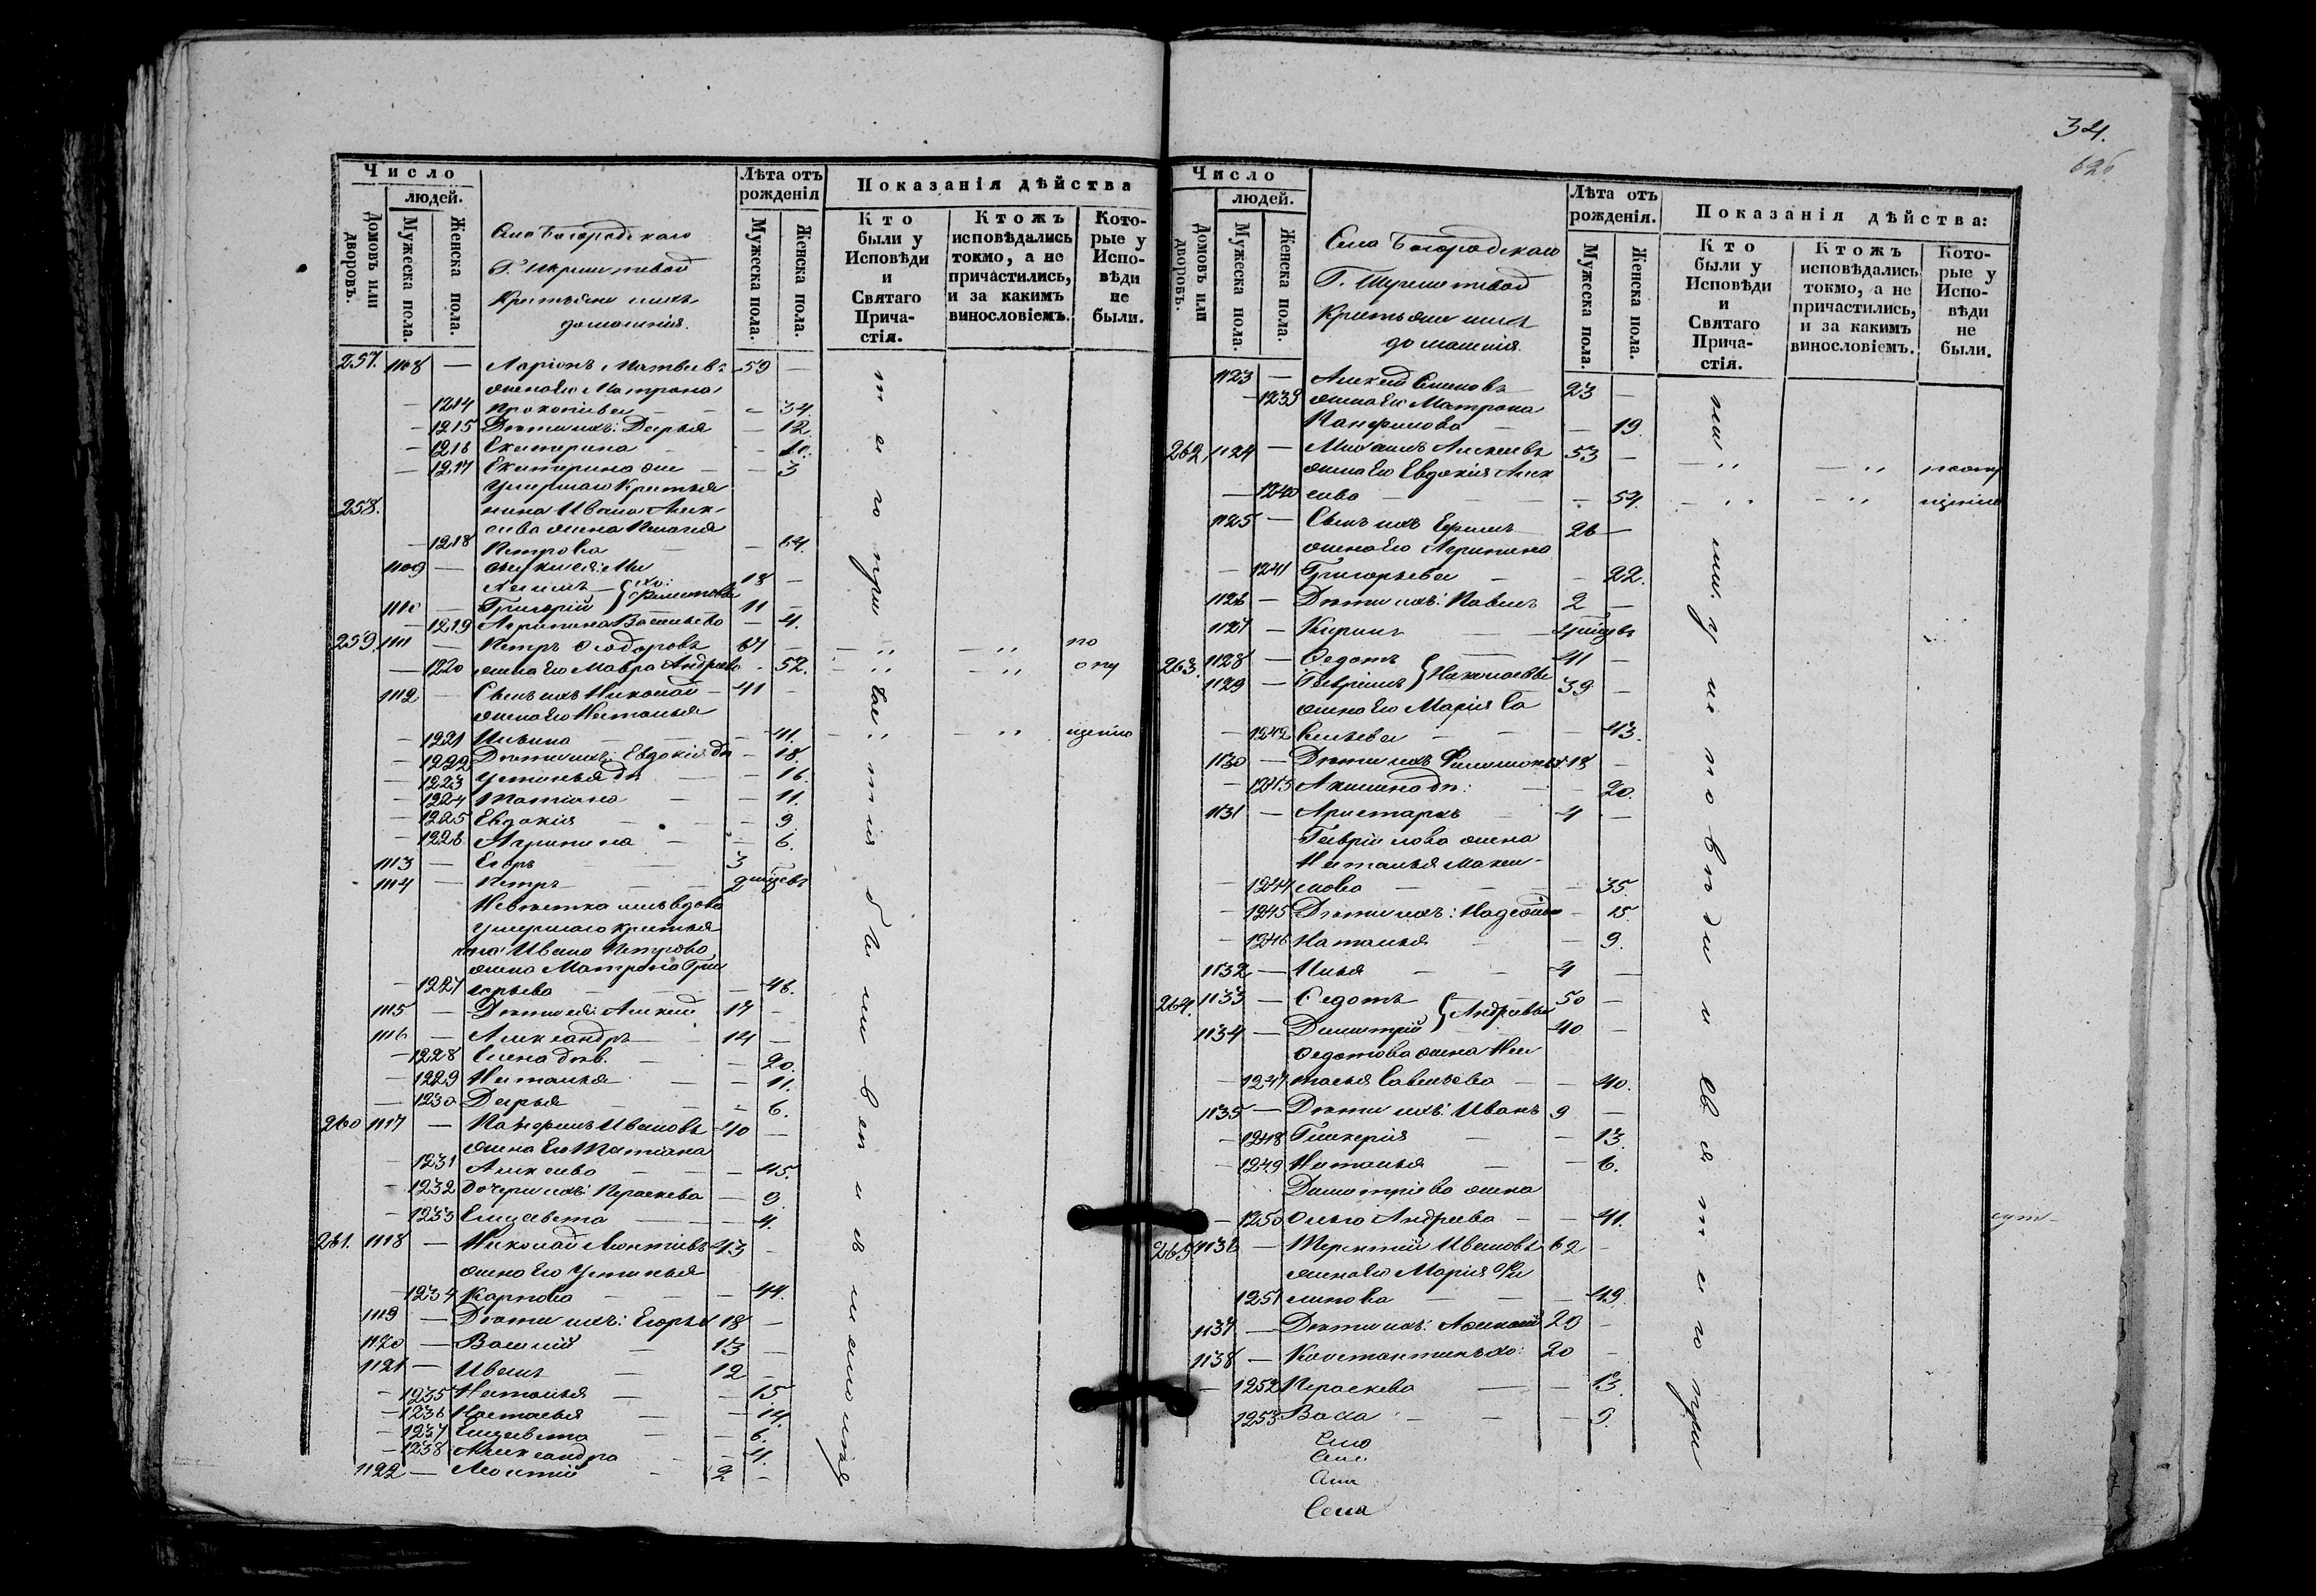 34.
626
Число
людей.
Домовъ или дворовъ.
Мужеска пола.
Женска пола.
Села Богородскаго
Г. Шереметевой
Крестьяне и ихъ
домашнія.
Лѣта отъ рожденія
Мужеска пола.
Женска пола.
Показанія дѣйства
Кто были у Исповѣди и Святаго Причастія.
Ктожъ исповѣдались токмо, а не причастились, и за какимъ винословіемъ.
Которые у Исповѣди не были.
257. 1108 — Ларіонъ Матвеевъ 59 —
жена его Матрона
— 1214 Прокопьева — — 34.
— 1215 Дѣти ихъ: Дарья — 12.
— 1216 Екатерина — 10.
— 1217 Екатерина — 3
Умершаго крестья
258. нина Ивана Алек-
сѣева жена Пелагея
— 1218 Петрова — 64.
1109 —
18 —
1110 — Григорій 11 —
— 1219 Агрипина Васильева — 4.
259 1111 — Петръ Ѳедоровъ 67 — — " — " по
— 1220 жена его Мавра Андреева — 52. — " — " опу
1112 — Сынъ ихъ Николай — 41 —
жена его Наталья
— 1221 Ильина — 41. — " — " щенію
— 1222 Дѣти ихъ: Евдокія дѣ — 18.
— 1223 Устинья дѣ — 16.
— 1224 Татіана — 11.
— 1225 Евдокія — 9.
— 1226 Агрипина — 6.
1113 — Егоръ 3 —
1114 — Петръ
умершаго крестья
на Ивана Петрова
жена Матрона Гри
— 1227 горьева — 46.
1115 — Дѣти ея: Алексей 17 —
1116 — Александръ 14 —
— 1228 Елена дѣв. — 20.
— 1229 Наталья — 11.
— 1230 Дарья — 6.
260 1117 — Панфилъ Ивановъ 40 —
жена его Татіана
— 1231 Алексеева — 45.
— 1232 Дочери ихъ: Параскева — 9
— 1233 Елизавета — 4.
261. 1118 — Николай Леонтіевъ 43 —
жена его Устинья
— 1234 Карпова — 44.
1119 — Дѣти ихъ: Егоръ 18 —
1120 — Василій 13 —
1121 — Иванъ 12 —
— 1235 Наталья — 15.
— 1236 Настасья — 14.
— 1237 Елизавета — 6.
— 1238 Александра — 4.
1122 — Леонтій 2 —
Число
людей.
Домовъ или дворовъ.
Мужеска пола.
Женска пола.
Села Богородскаго
Г. Шереметевой
Крестьяне и ихъ
домашнія.
Лѣта отъ рожденія.
Мужеска пола.
Женска пола.
Показанія дѣйства:
Кто были у Исповѣди и Святаго Причастія.
Ктожъ исповѣдались токмо, а не причастились, и за какимъ винословіемъ.
Которые у Исповѣди не были.
1123 — Алексей Семеновъ 23 —
— 1239 жена его Матрона
Панфилова — — 19.
262 1124 — Михаилъ Алексеевъ 53 — — " — " поопу
жена его Евдокія Алек
— 1240 сеева — 54. — " — " щенію
1125 — Сынъ ихъ Ефимъ 26 —
жена его Агрипина
— 1241 Григорьева — — 22.
1126 — Дѣти ихъ: Павелъ 2 —
1127 — Кирилъ
263. 1128 — Ѳедотъ 41 —
1129 — Гаврилъ } Николаевы 39 —
жена его Марія Са
— 1242 вельева — — 43.
1130 — Дѣти ихъ Филимонъ 18 —
— 1243 Акилина дѣ: — 20.
1131 — Аристархъ 4 —
Гаврилова жена
Наталья Макси-
— 1244 мова — — 35.
— 1245 Дѣти ихъ: Надежда — 15.
— 1246 Наталья — 9.
1132 — Илья — 4 —
264. 1133 — Ѳедотъ 50 —
1134 — Димитрій } Андреевы 40 —
Ѳедотова жена На
— 1247 талья Савельева — 40.
1135 — Дѣти ихъ: Иванъ 9 —
— 1248 Гликерія — 13.
— 1249 Наталья — 6.
Димитріева жена
— 1250 Ольга Андреева — 41.
265 1136 — Терентій Ивановъ 62 —
жена его Марія Фи
1251 липова — — 49.
1137 — Дѣти ихъ: Афанасій 29 —
1138 — Константинъ хо: 20 —
— 1252 Параскева — 13.
1253 Васса — — 9.
Села